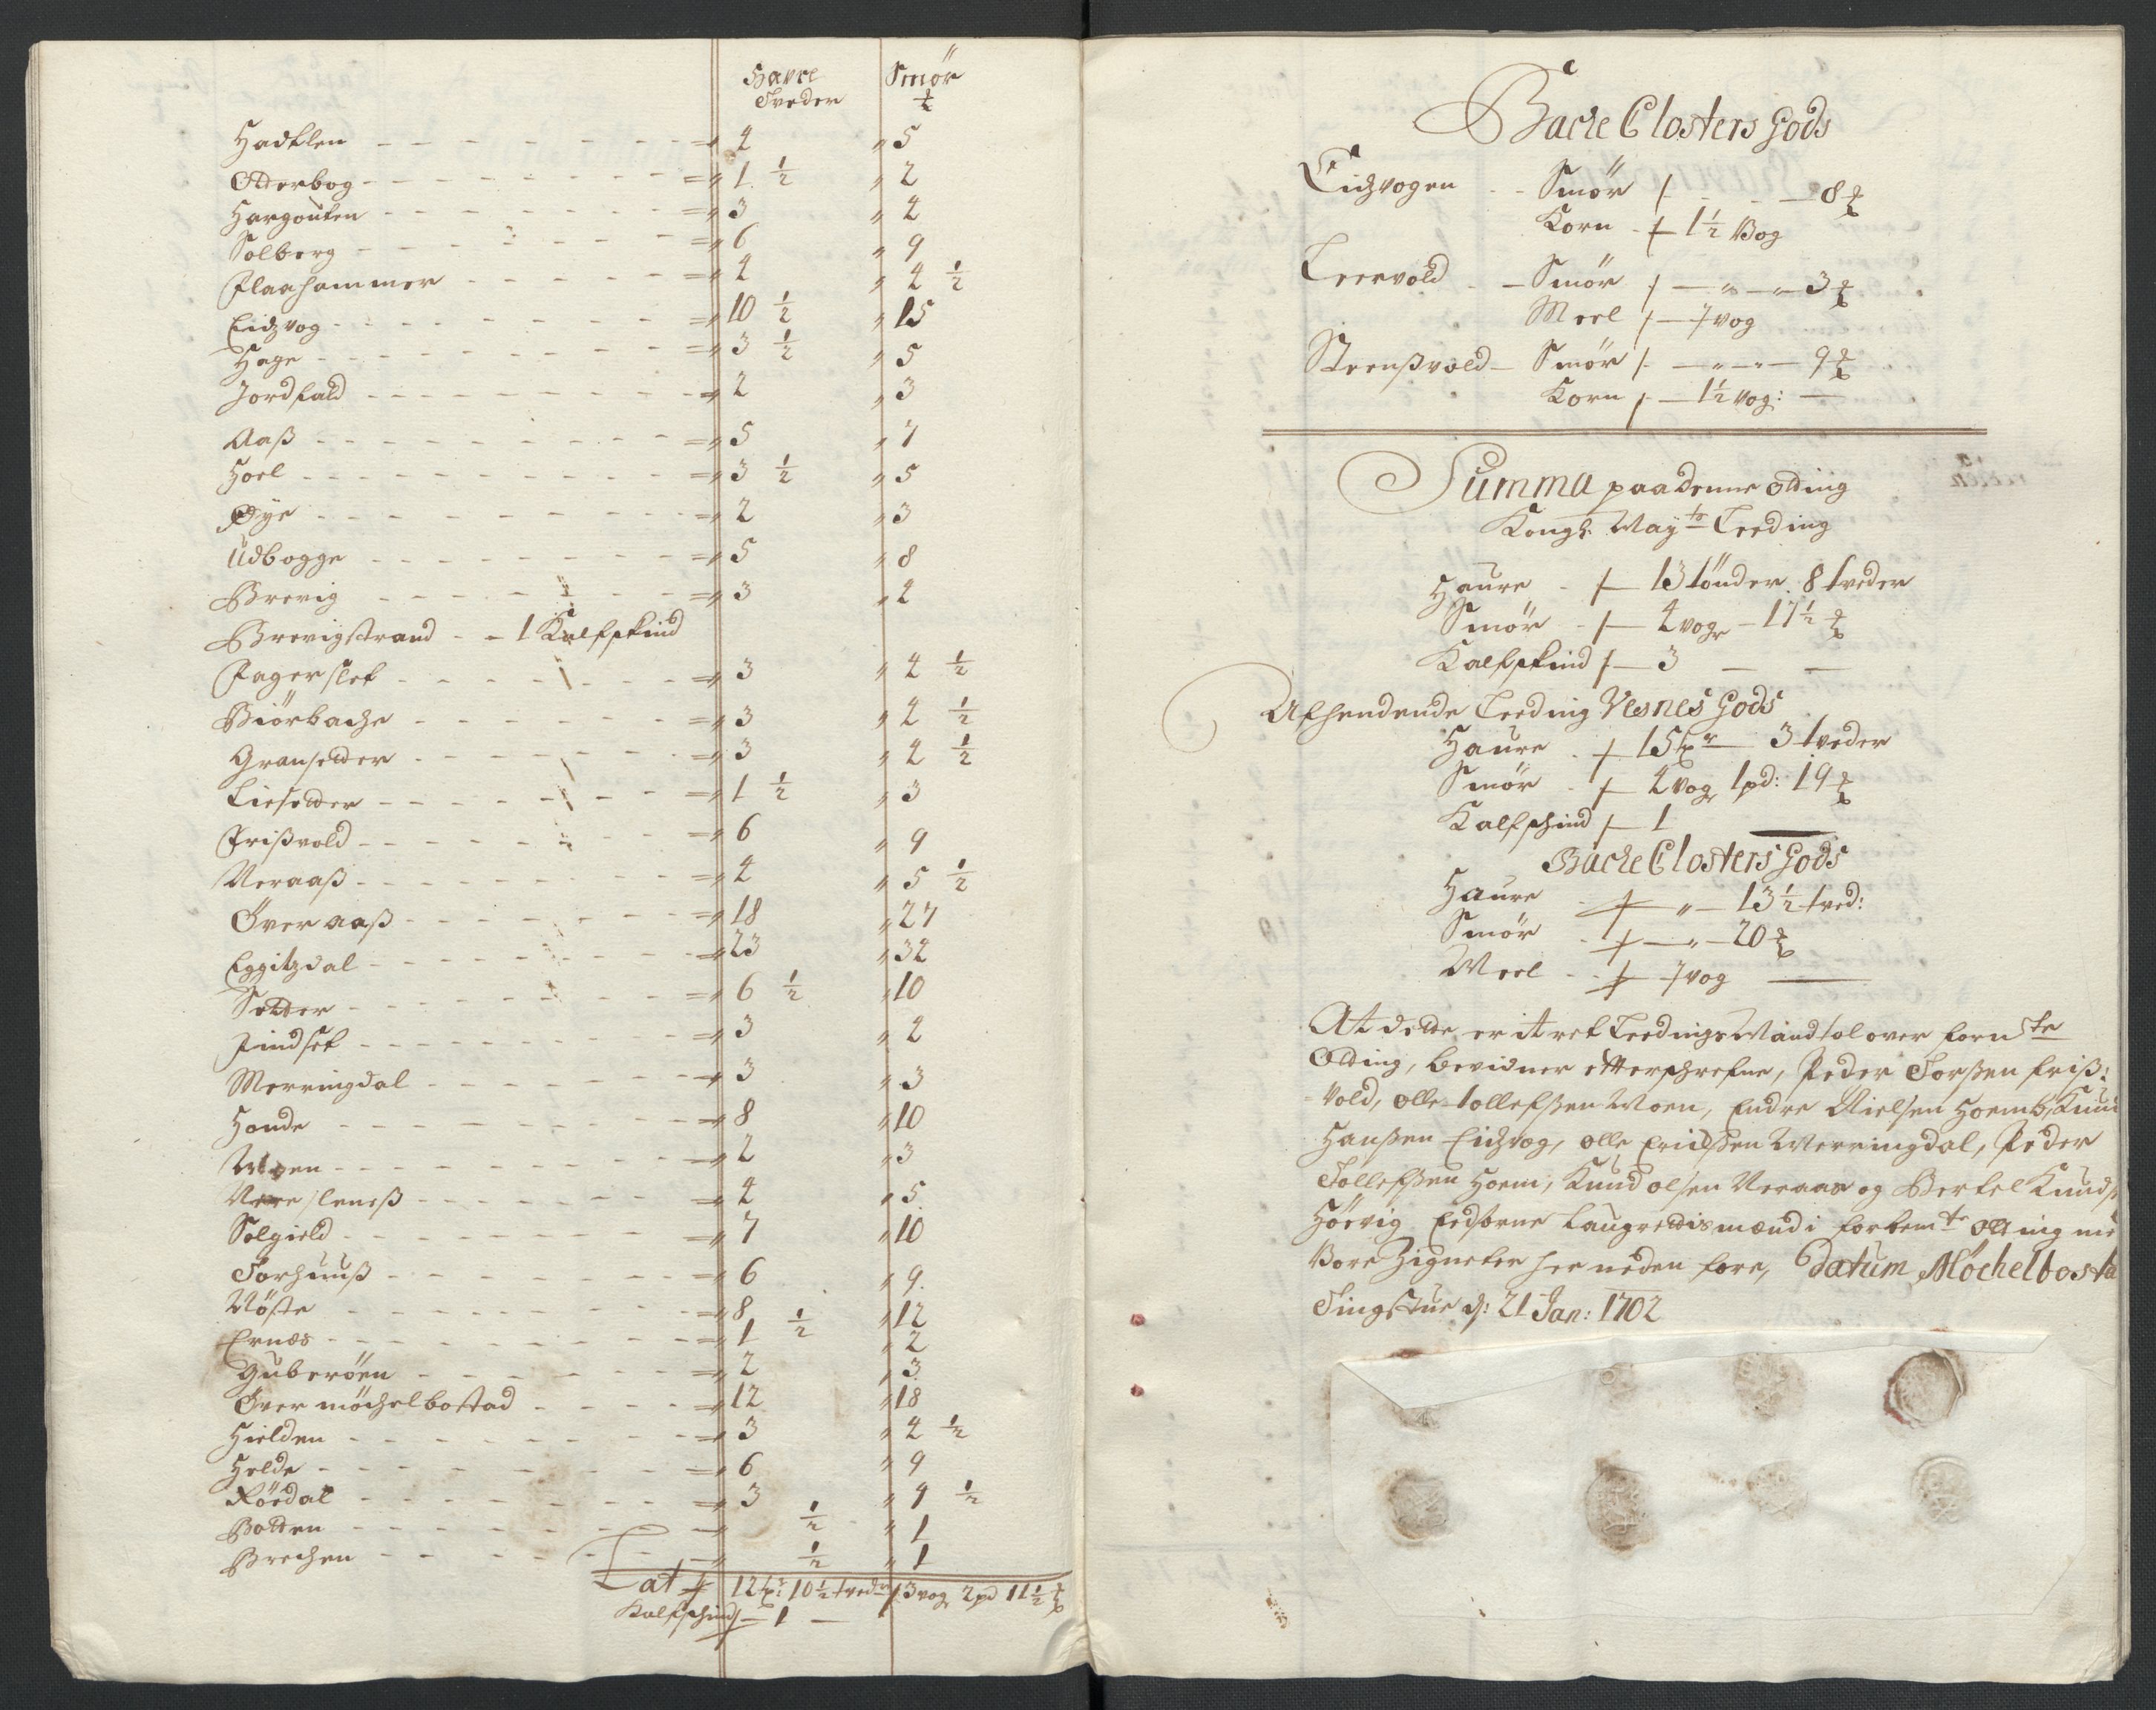 Havre Smør
Tveder ℔
Hadklen 4 5
Otterbog 1 1/2 2
Hargouten 3 4
Solberg 6 9
Flaahammer 4 4 1/2
Eidzvog 10 1/2 15
Hage 3 1/2 5
Jordfald 2 3
Aaß 5 7
Hoel 3 1/2 5
Øye 2 3
Udbogge 5 8
Brevig 3 4
Brevigstrand 1 Kalfskind
Fagerslet 3 4 1/2
Biörbache 3 4 1/2
Gransetter 3 4 1/2
Liesetter 1 1/2 3
Frißvold 6 9
Neraaß 4 5 1/2
Över aaß 18 27
Eggitzdal 23 34
Setter 6 1/2 10
Findset 3 4
Merringdal 3 3
Hende 8 10
Moen 2 3
steneß 4 5
Solgield 7 10
Torhuuß 6 9
Nöste 8 12
Ernæs 1 1/2 2
Guberöen 2 3
Över möchelbostad 12 18
Hielden 3 4 1/2
Helde 6 9
Röedal 3 4 1/2
Botten 1/2 1
Brechen 1/2 1
Lat 12 tr: 10 1/2 tvedr 13 vog 2 pd 11 1/2 ℔
Kalfschind 1
Bache Closters Gods
Eidzvogen Smør 8 ℔
Korn 1 1/2 Vog
Leervold Smør 3 ℔
Meel 1 vog
Steenßvold Smør 9 ℔
Korn 1 1/2 vog:
Summa paa denne otting
Kongl: Mayts Leeding
Haure 13 tönder 8 tveder
Smør 4 vogr 17 1/2 ℔
Kalfskind 3
Afhendende Leeding Vesnes Gods
Haure 15 tr 3 tveder
Smør 4 vog 1 pd: 19 ℔
Kalfschind 1
Bache Closters Gods
Haure 13 1/2 tved:
Smør 20 ℔
Meel 1 vog
At dette er it ret Leedings Mandtal over fornte
Otting, bevidner efterschrefne, Peder Torßen friß:
vold, olle tollefßen Moen, Endre Nielsen Hoemb, Knud
Hanßen Eidzvog, olle Erichßen Merringdal, Peder
Tollefßen Hoem, Knud olsen Neraas og Bertel Knuds
Höevig Edsorne Laugrettismænd i forbemte otting med
Vore Zigneter her neden fore, Datum Möchelbosta
Tingstue d: 21 Jan: 1702